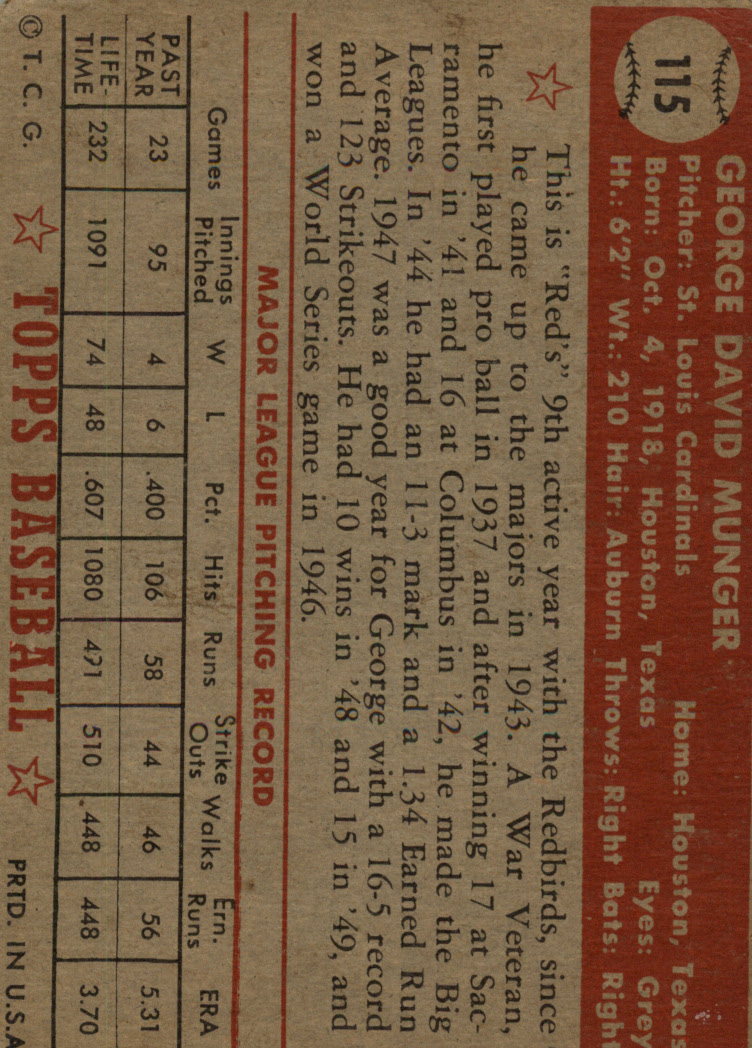 115
GEORGE DAVID MUNGER
Pitcher: St. Louis Cardinals Home: Houston, Texas
Born: Oct. 4, 1918, Houston, Texas Eyes: Grey
Ht.: 6'2" Wt.: 210 Hair: Auburn Throws: Right Bats: Right
This is "Red's" 9th active year with the Redbirds, since
he came up to the majors in 1943. A War Veteran,
he first played pro ball in 1937 and after winning 17 at Sac-
ramento in '41 and 16 at Columbus in '42, he made the Big
Leagues. In '44 he had an 11-3 mark and a 1.34 Earned Run
Average. 1947 was a good year for George with a 16-5 record
and 123 Strikeouts. He had 10 wins in '48 and 15 in '49, and
won a World Series game in 1946.
MAJOR LEAGUE PITCHING RECORD
Games Innings Pitched W L Pct. Hits Runs Strike Outs Walks Ern. Runs ERA
PAST YEAR 23 95 4 6 .400 106 58 44 46 56 5.31
LIFE-TIME 232 1091 74 48 .607 1080 471 510 448 448 3.70
© T. C. G. TOPPS BASEBALL PRTD. IN U.S.A